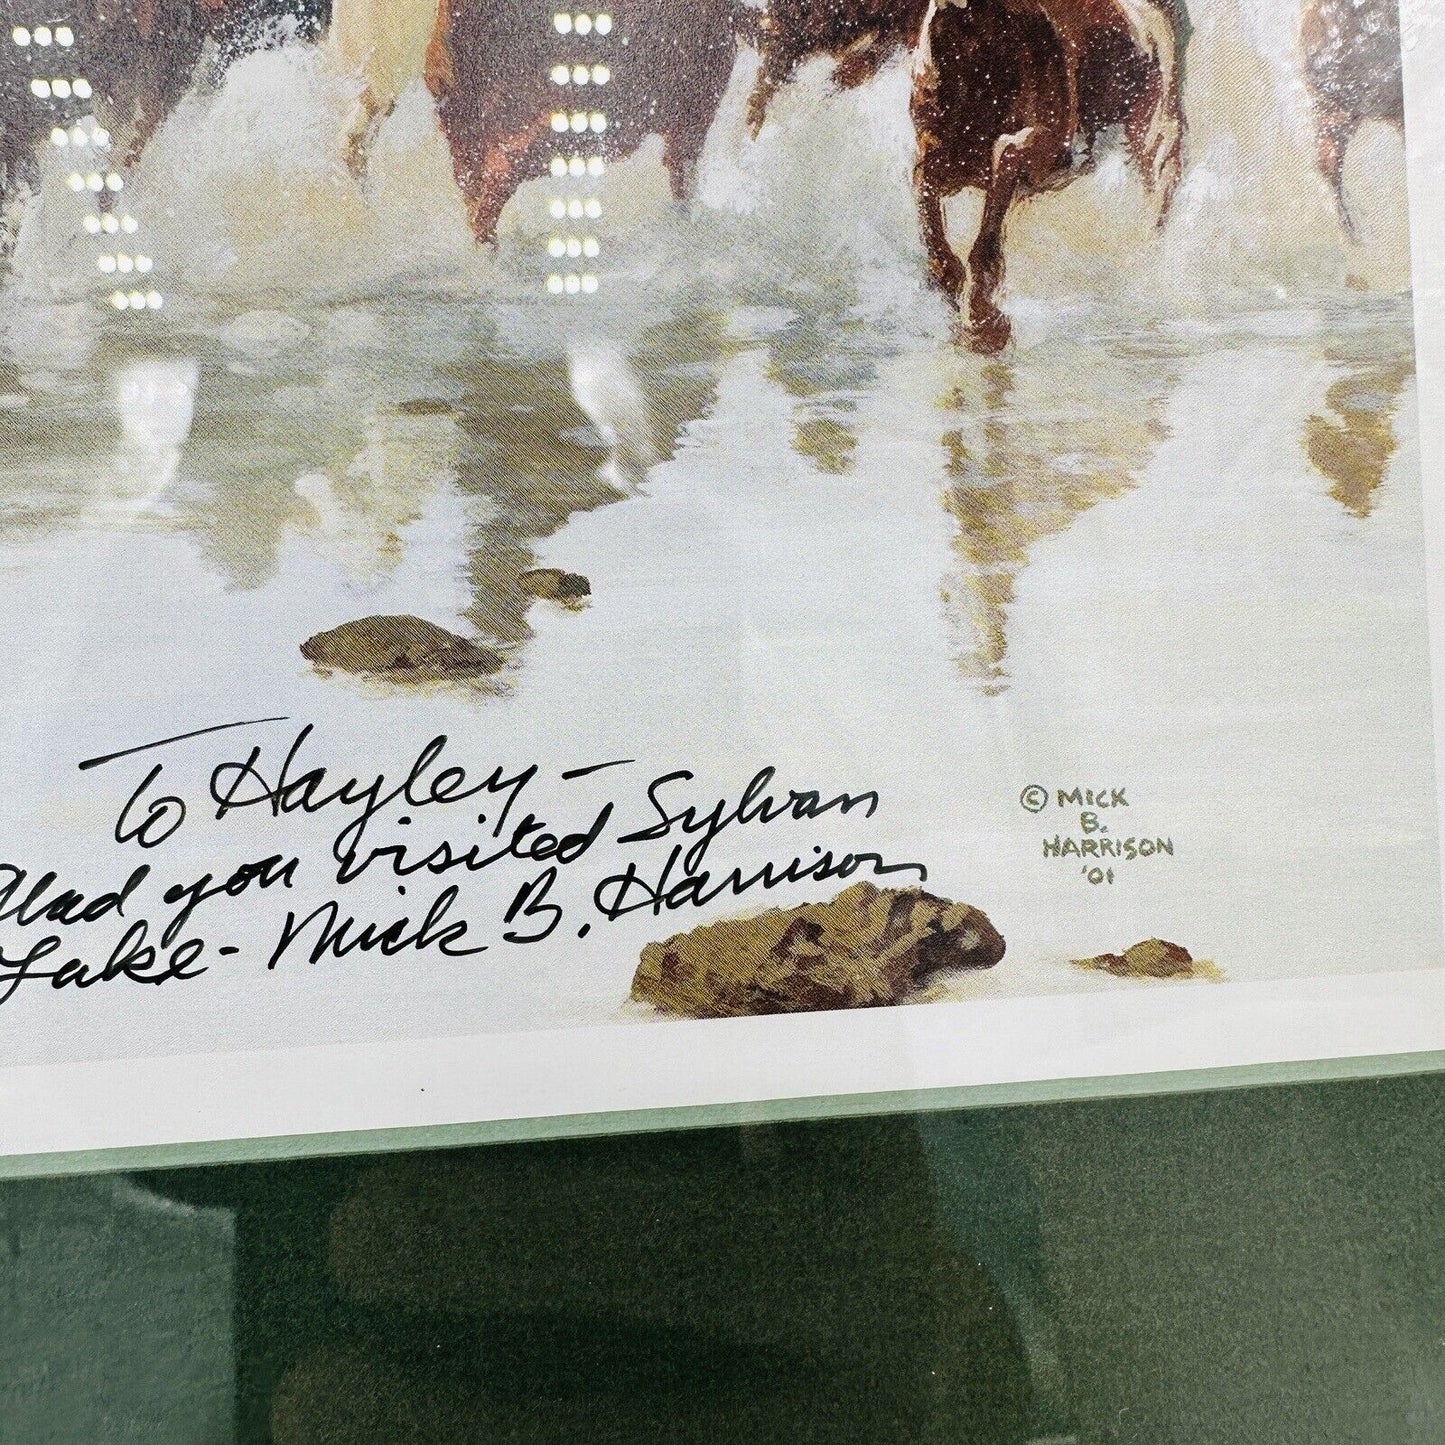 To Hayley-
Glad you visited Sylvan
Lake- Mick B. Harrison
© MICK
B.
HARRISON
'01